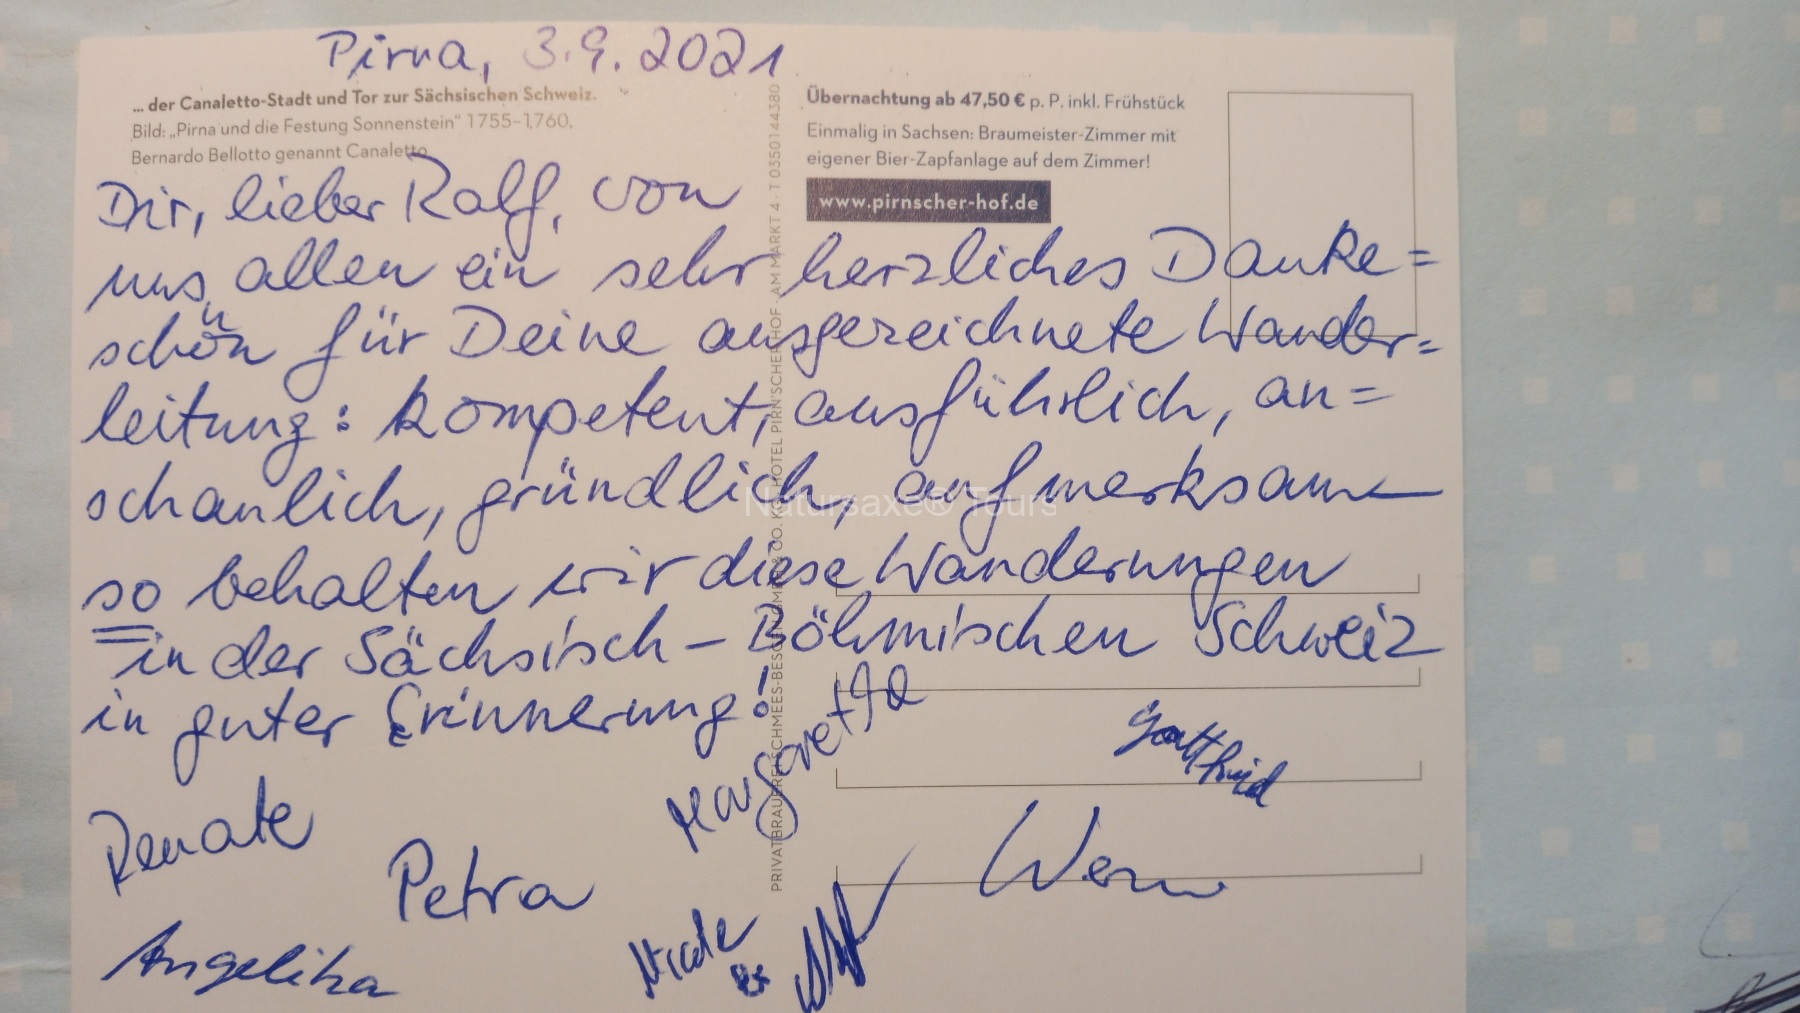 Pirna, 3.9.2021
... der Canaletto-Stadt und Tor zur Sächsischen Schweiz.
Bild: „Pirna und die Festung Sonnenstein“ 1755–1760,
Bernardo Bellotto genannt Canaletto
Übernachtung ab 47,50 € p. P. inkl. Frühstück
Einmalig in Sachsen: Braumeister-Zimmer mit
eigener Bier-Zapfanlage auf dem Zimmer!
www.pirnscher-hof.de
Dir, lieber Ralf, von
uns allen ein sehr herzliches Danke=
schön für Deine ausgezeichnete Wander=
leitung: kompetent, ausführlich, an=
schaulich, gründlich, aufmerksam —
so behalten wir diese Wanderungen
in der Sächsisch – Böhmischen Schweiz
in guter Erinnerung!
Renate
Petra
Angelika
Margaretha
Nicole
&
Gottfried
Werner
PRIVATBRAUEREI SCHMEES-BESCH GMBH & CO. KG · HOTEL PIRN'SCHER HOF · AM MARKT 4 · T 0350144380
Natursaxe® Tours